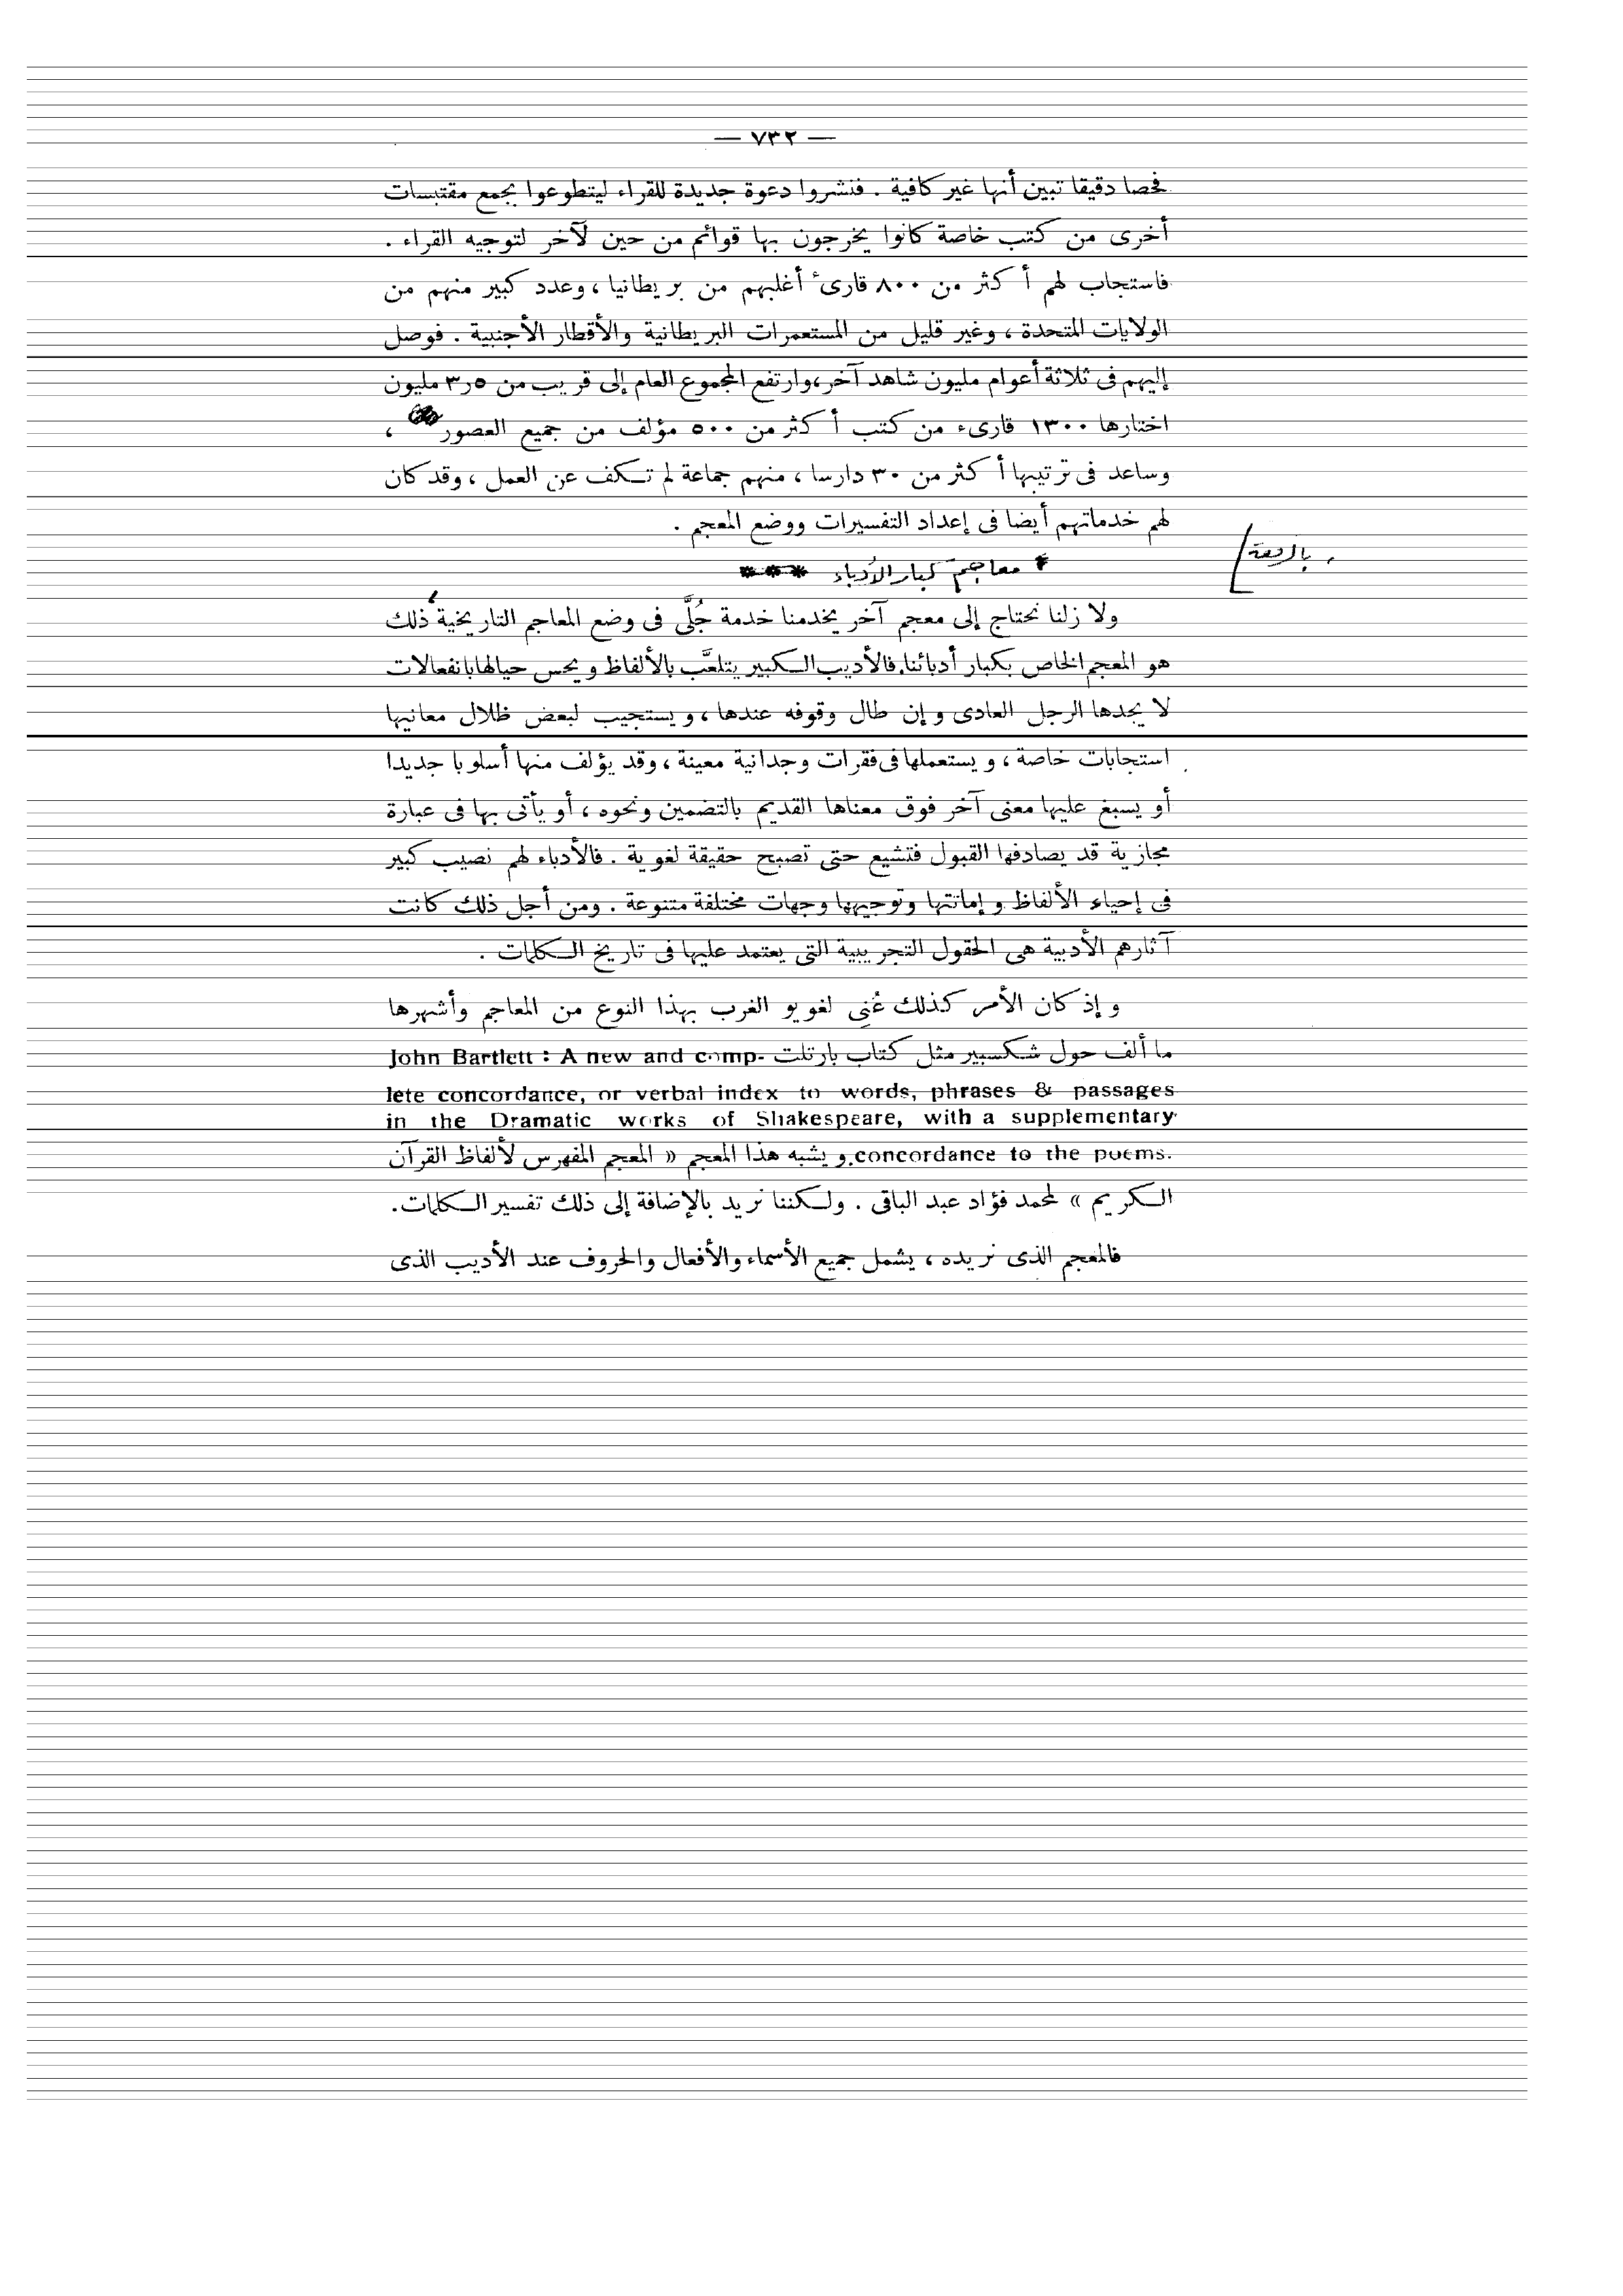 — ٧٣٢ —
فحصا دقيقا تبين أنها غير كافية . فنشروا دعوة جديدة للقراء ليتطوعوا بجمع مقتبسات
أخرى من كتب خاصة كانوا يخرجون بها قوائم من حين لآخر لتوجيه القراء .
فاستجاب لهم أكثر من ٨٠٠ قارئ أغلبهم من بريطانيا ، وعدد كبير منهم من
الولايات المتحدة ، وغير قليل من المستعمرات البريطانية والأقطار الأجنبية . فوصل
إليهم فى ثلاثة أعوام مليون شاهد آخر ، وارتفع المجموع العام إلى قريب من ٣٫٥ مليون
اختارها ١٣٠٠ قارىء من كتب أكثر من ٥٠٠ مؤلف من جميع العصور ،
وساعد فى ترتيبها أكثر من ٣٠ دارسا ، منهم جماعة لم تكف عن العمل ، وقد كان
لهم خدماتهم أيضا فى إعداد التفسيرات ووضع المعجم .
معاجم كبار الأدباء
ولا زلنا نحتاج إلى معجم آخر يخدمنا خدمة جُلَّى فى وضع المعاجم التاريخية ذلك
هو المعجم الخاص بكبار أدبائنا. فالأديب الكبير يتلعَّب بالألفاظ ويحس حيالها بانفعالات
لا يجدها الرجل العادى وإن طال وقوفه عندها ، ويستجيب لبعض ظلال معانيها
استجابات خاصة ، ويستعملها فى فقرات وجدانية معينة ، وقد يؤلف منها أسلوبا جديدا
أو يسبغ عليها معنى آخر فوق معناها القديم بالتضمين ونحوه ، أو يأتى بها فى عبارة
مجازية قد يصادفها القبول فتشيع حتى تصبح حقيقة لغوية . فالأدباء لهم نصيب كبير
فى إحياء الألفاظ وإماتتها وتوجيهها وجهات مختلفة متنوعة . ومن أجل ذلك كانت
آثارهم الأدبية هى الحقول التجريبية التى يعتمد عليها فى تاريخ الكلمات .
وإذ كان الأمر كذلك عُنِى لغويو الغرب بهذا النوع من المعاجم وأشهرها
ما ألف حول شكسبير مثل كتاب بارتلت John Bartlett : A new and comp-
lete concordance, or verbal index to words, phrases & passages
in the Dramatic works of Shakespeare, with a supplementary
concordance to the poems. ويشبه هذا المعجم « المعجم المفهرس لألفاظ القرآن
الكريم » لمحمد فؤاد عبد الباقى . ولكننا نريد بالإضافة إلى ذلك تفسير الكلمات .
فالمعجم الذى نريده ، يشمل جميع الأسماء والأفعال والحروف عند الأديب الذى